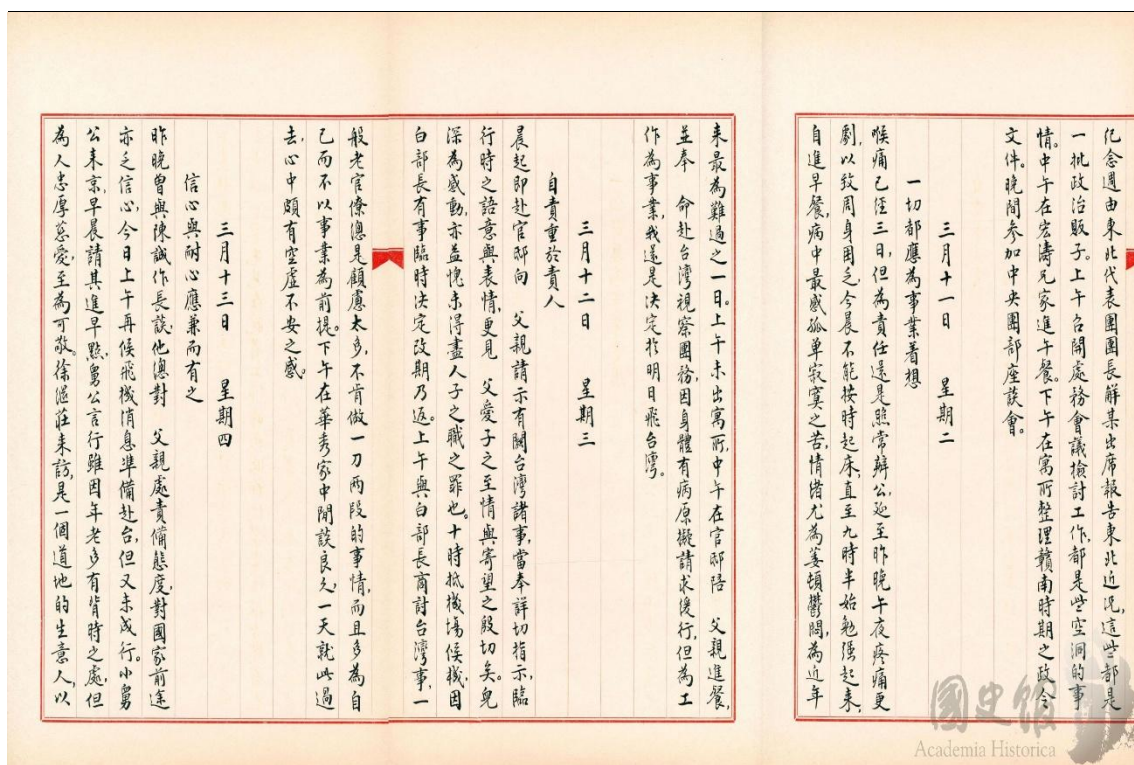 紀念週由東北代表團團長解某出席報告東北近況,這些都是
一批政治販子。上午召開處務會議檢討工作,都是些空洞的事
情。中午在宏濤兄家進午餐。下午在寓所整理贛南時期之政令
文件。晚間參加中央團部座談會。
三月十一日 星期二
一切都應為事業着想
喉痛已經三日,但為責任還是照常辦公,延至昨晚午夜疼痛更
劇,以致周身困乏,今晨不能按時起床,直至九時半始勉強起來,
自進早餐,病中最感孤單寂寞之苦,情緒尤為萎頓鬱悶,為近年
來最為難過之一日。上午未出寓所,中午在官邸陪 父親進餐,
並奉 命赴台灣視察團務,因身體有病原擬請求緩行,但為工
作為事業,我還是決定於明日飛台灣。
三月十二日 星期三
自責重於責人
晨起即赴官邸向 父親請示有關台灣諸事,當奉詳切指示,臨
行時之語意與表情,更見 父愛子之至情與寄望之殷切矣。兒
深為感動,亦益愧未得盡人子之職之罪也。十時抵機場候機,因
白部長有事臨時決定改期乃返。上午與白部長商討台灣事,一
般老官僚總是顧慮太多,不肯做一刀兩段的事情,而且多為自
己而不以事業為前提。下午在華秀家中閒談良久,一天就此過
去,心中頗有空虛不安之感。
三月十三日 星期四
信心與耐心應兼而有之
昨晚曾與陳誠作長談,他總對 父親處責備態度,對國家前途
亦乏信心,今日上午再候飛機消息準備赴台,但又未成行。小舅
公來京,早晨請其進早點,舅公言行雖因年老多有背時之處,但
為人忠厚慈愛,至為可敬。徐逸莊來訪,是一個道地的生意人,以
國史館
Academia Historica